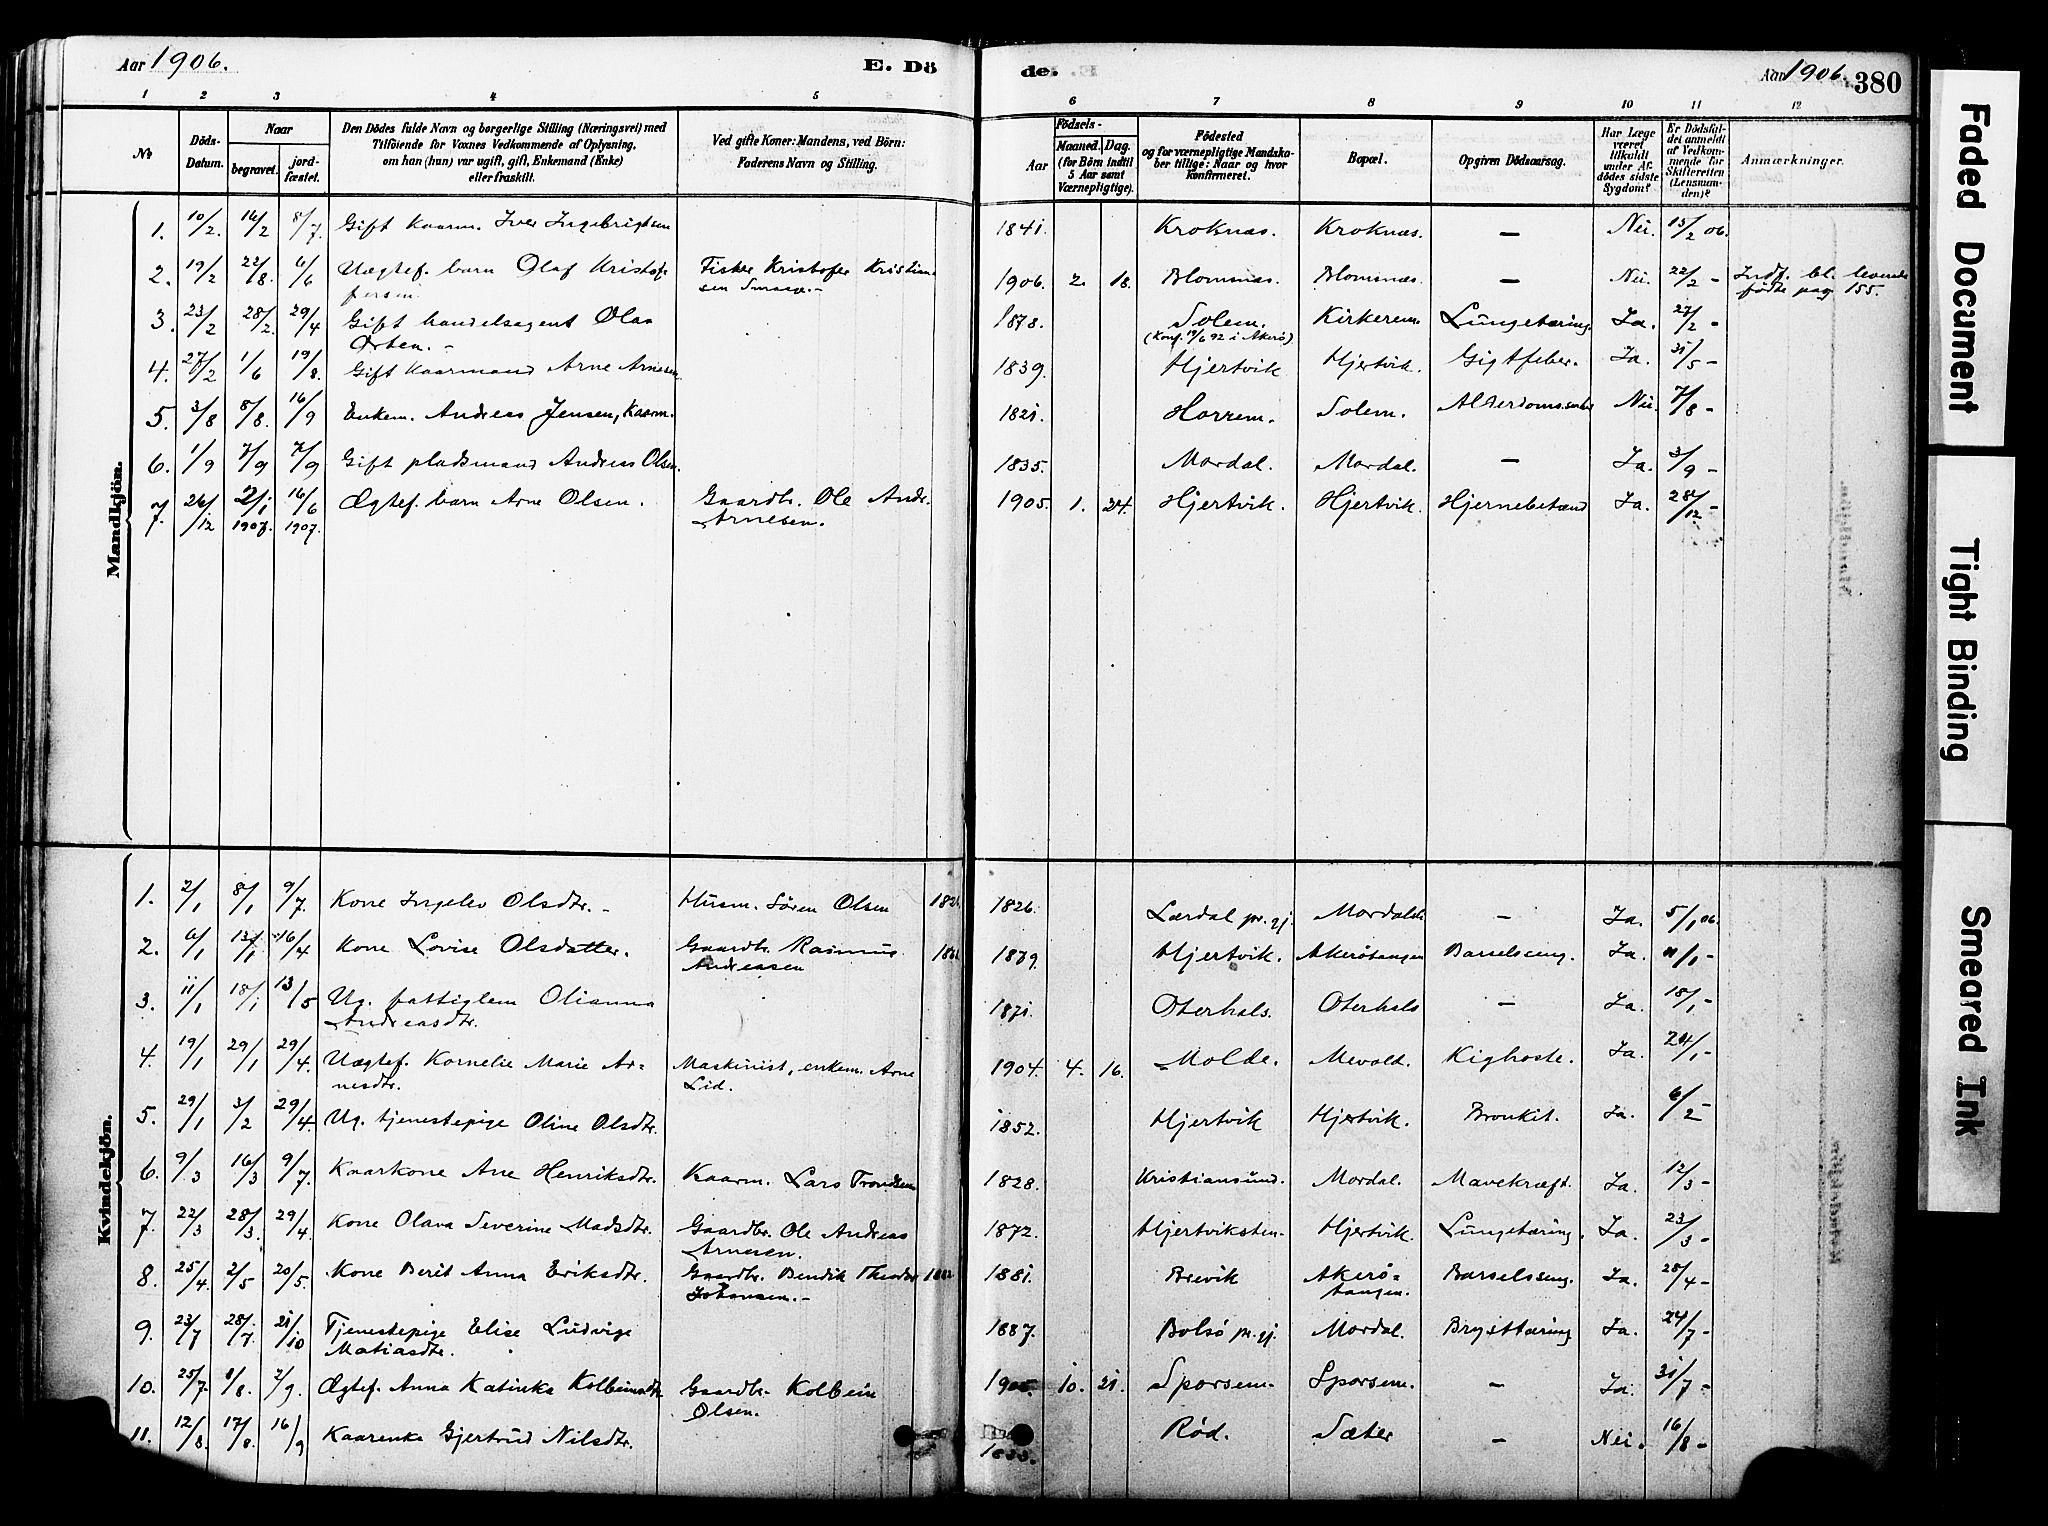 Aar 1906. E. Dö de. Aar 1906. 380
1 2 3 4 5 6 7 8 9 10 11 12
No.
Döds-Datum.
Naar
begravet.
jordfæstet.
Den Dödes fulde Navn og borgerlige Stilling (Næringsvei) med
Tilföiende for Voxnes Vedkommende af Oplysning,
om han (hun) var ugift, gift, Enkemand (Enke)
eller fraskilt.
Ved gifte Koner: Mandens, ved Börn:
Faderens Navn og Stilling.
Födsels-
Aar
Maaned. Dag.
(for Börn indtil
5 Aar samt
Værnepligtige).
Födested
og for værnepligtige Mandska-
ber tillige: Naar og hvor
konfirmeret.
Bopæl.
Opgiven Dödsaarsag.
Har Læge
været
tilkaldt
under Af-
dödes sidste
Sygdom?
Er Dödsfal-
det anmeldt
af Vedkom-
mende for
Skifteretten
(Lensman-
den)?
Anmærkninger.
Mandkjön.
1. 10/2. 16/2 8/7. Gift kaarm. Iver Ingebrigtsen 1841. Kroknæs. Kroknæs. — Nei. 15/2 06.
2. 19/2 22/8. 6/6 Uægtef. barn Olaf Kristof- Fisker Kristofer Kristian- 1906. 2. 18. Blomnæs. Blomsnæs. — Nei. 22/2 - Indf. bl. levende
fersen. sen fødte pag 155.
3. 23/2 28/2. 29/4 Gift handelsagent Olaa 1878. Solem. Kirkerem. Lungetæring. Ja. 27/2 -
Orten. - (Konf. 19/6 92 i Akerö)
4. 27/2 1/6 19/8. Gift kaarmand Arne Arnesen. 1839. Hjertvik Hjertvik. Gigtfeber. Ja. 31/5 -
5. 3/8 8/8. 16/9 Enkem. Andreas Jensen, kaarm. 1821. Horrem. Solem. Nei. 7/8 -
6. 1/9 7/9 7/9 Gift pladsmand Andreas Olsen. 1835. Mordal. Mordal. — Ja. 3/9 -
7. 26/12 2/1 1907. 16/6 1907. Ægtef. barn Arne Olsen. Gaardbr. Ole Andr. 1905. 1. 24. Hjertvik. Hjertvik. Hjernebetænd Ja. 28/12 -
Arnesen.
Kvindekjön.
1. 2/1 8/1 9/7. Kone Ingelev Olsdtr. - Husm. Sören Olsen 1826. Lærdal pr.gj. — Ja. 5/1 06.
2. 6/1 13/1 16/4 Kone Lovise Olsdatter. Gaardbr. Rasmus 1879. Hjertvik. Akerötangen Barselseng. Ja. 11/1 -
Andreasen
3. 11/1 18/1 13/5 Ug. fattiglem Olianna 1871. Oterhals. Oterhals — Ja. 18/1 -
Andreasdtr.
4. 19/1 29/1 29/4. Uægtef. Kornelie Marie Ar- Maskinist, enkem. Arne 1904. 4. 16. Molde. Mevold. Kighoste. Ja. 24/1 -
nesdtr. Lid.
5. 29/1 3/2 29/4. Ug. tjenestepige Oline Olsdtr. 1852. Hjertvik Hjertvik. Bronkit. Ja. 6/2 -
6. 9/3 16/3 9/7. Kaarkone Ane Henriksdtr. Kaarm. Lars Trondsen 1828. Kristiansund. Mordal. Mavekræft. Ja. 12/3 -
7. 22/3 28/3. 29/4. Kone Olava Severine Madsdtr. Gaardbr. Ole Andreas 1872. Hjertvik. Lungetæring. Ja. 23/3 -
Arnesen.
8. 25/4 2/5 20/5. Kone Berit Anna Eriksdtr. Gaardbr. Bendik Theodor 1881. Brevik Akerö- Barselseng. Ja. 28/4 -
Johansen. - tangen.
9. 23/7 28/7. 21/10 Tjenestepige Elise Ludvige 1887. Bolsö pr.gj. Mordal. Brysttæring Ja. 24/7 -
Matiasdtr.
10. 25/7. 1/8. 2/9. Ægtef. Anna Katinka Kolbeinsdtr. Gaardbr. Kolbein 1905. 10. 21. Sporsem. Sporsem. — Ja. 31/7 -
Olsen.
11. 12/8. 17/8. 16/9 Kaarenke Gjertrud Nilsdtr. 1833. Röd. Sæter — Nei. 16/8 -
Faded Document
Tight Binding
Smeared Ink